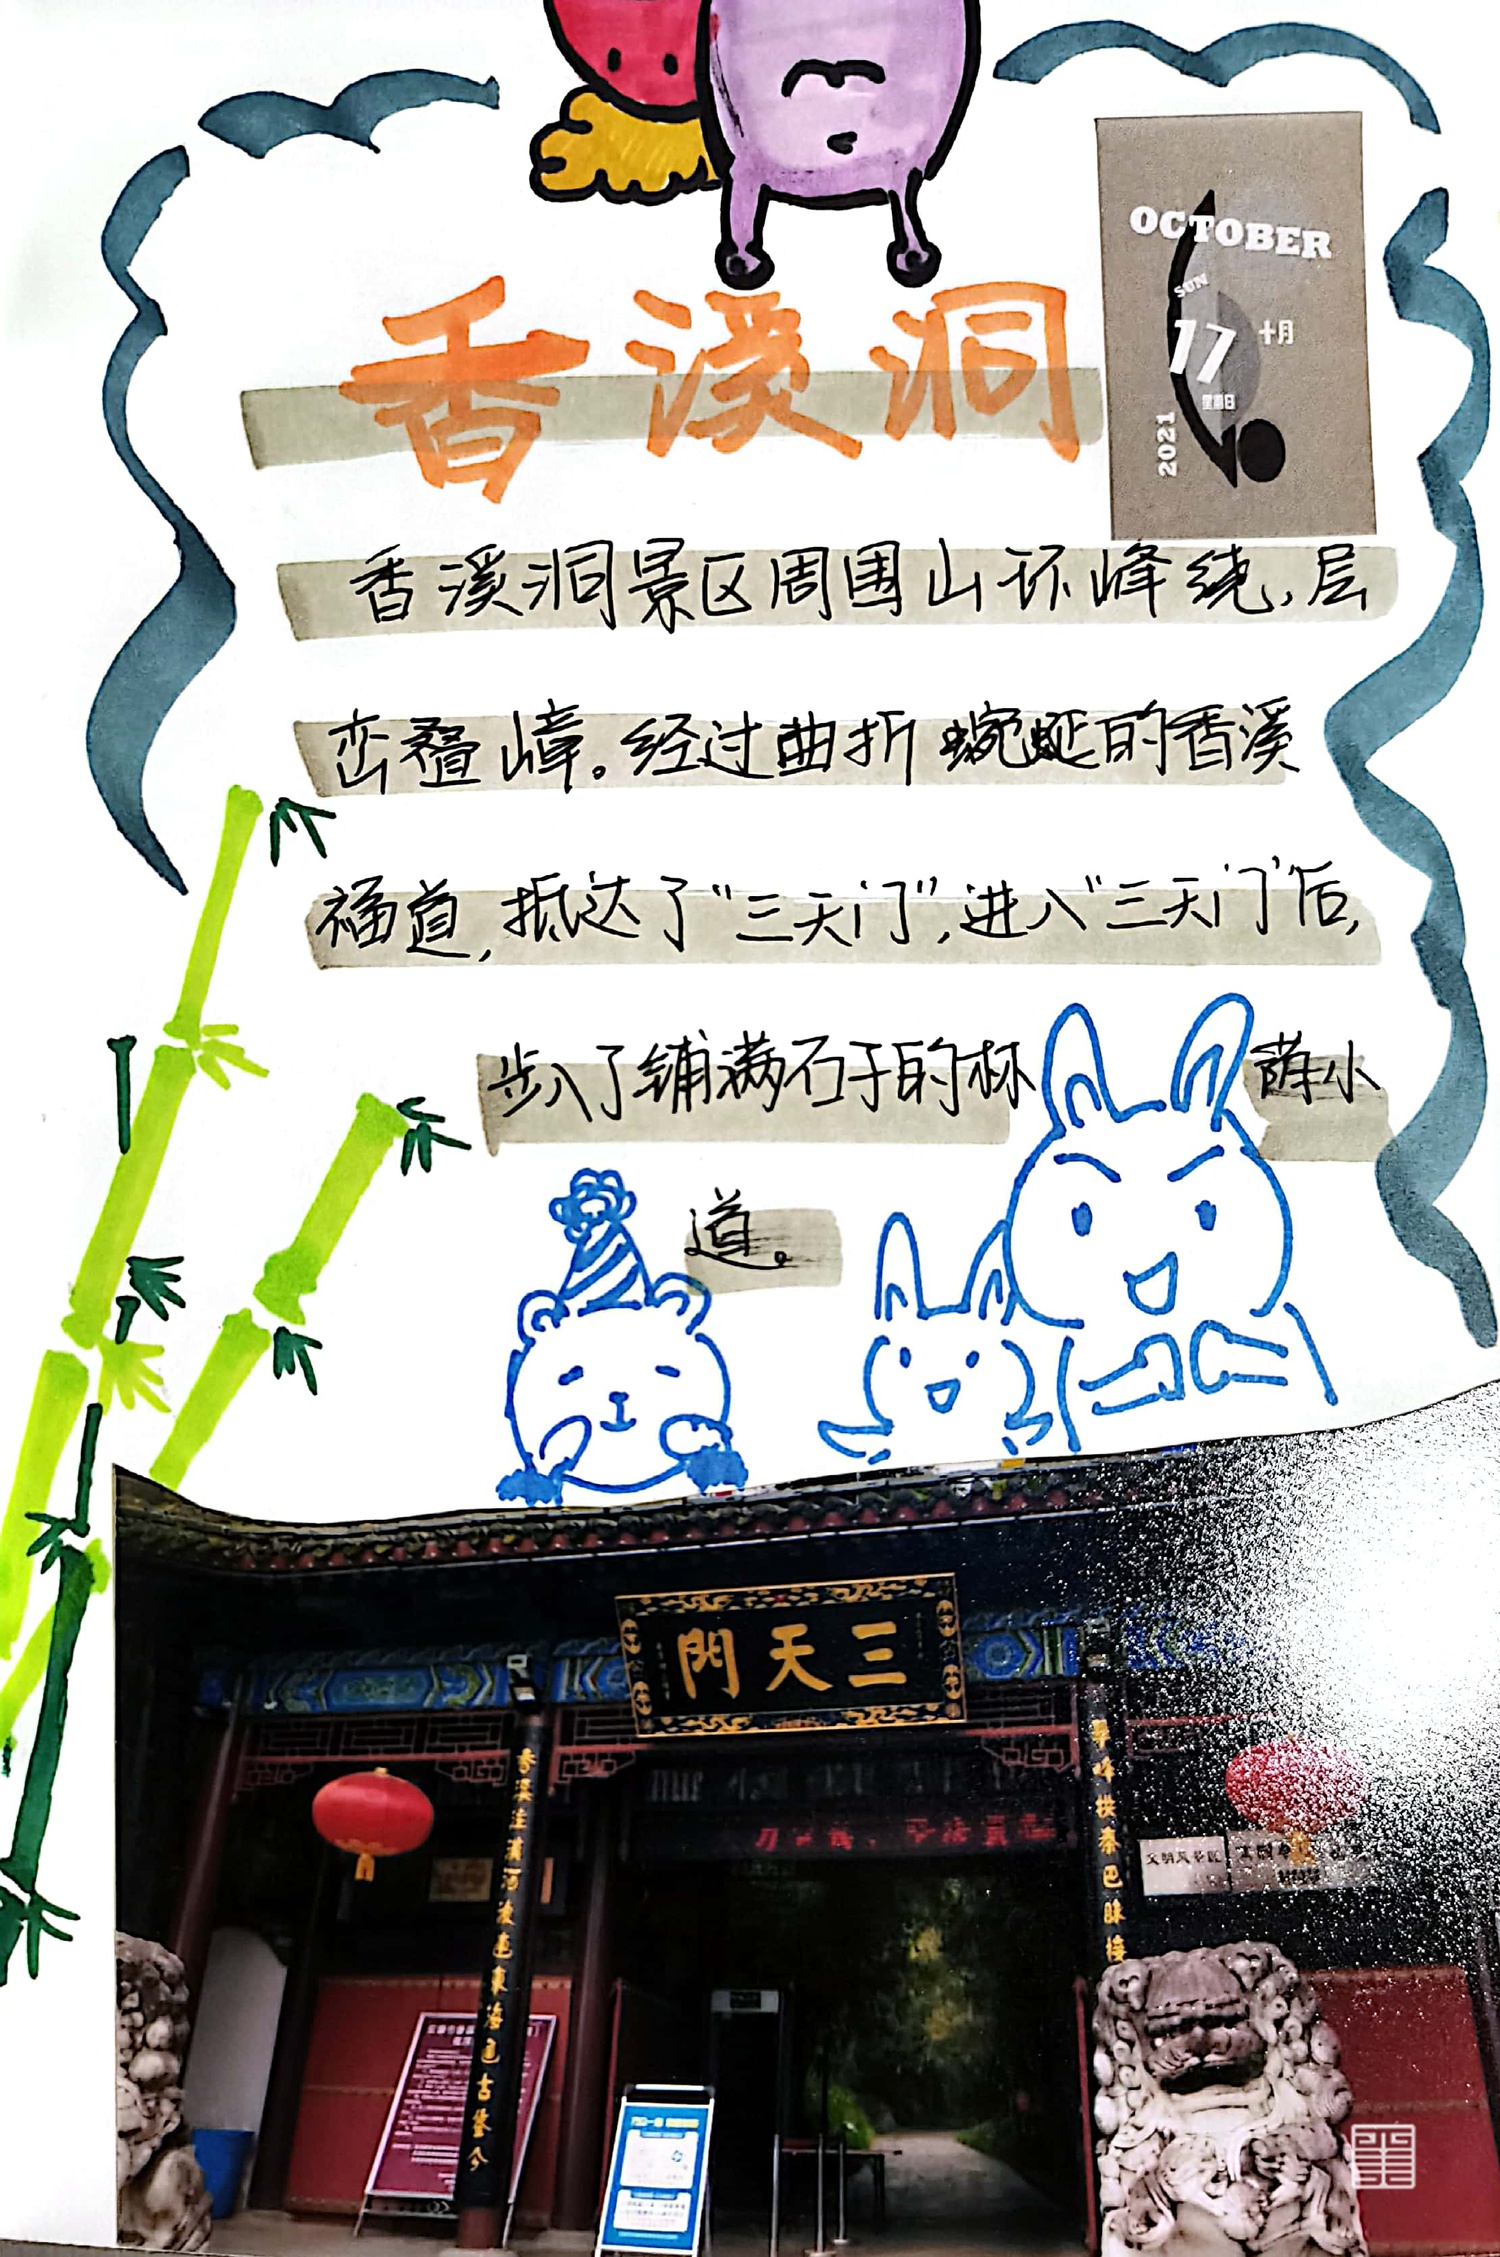 OCTOBER
SUN
17
十月
星期日
2021
香溪洞
香溪洞景区周围山环峰绕,层
峦叠嶂。经过曲折蜿蜒的香溪
福道,抵达了“三天门”,进入“三天门”后,
步入了铺满石子的林荫小
道。
門天三
香溪洼漢河凌連東海通古登今
翠峰拱秦巴脉接
文明风景区